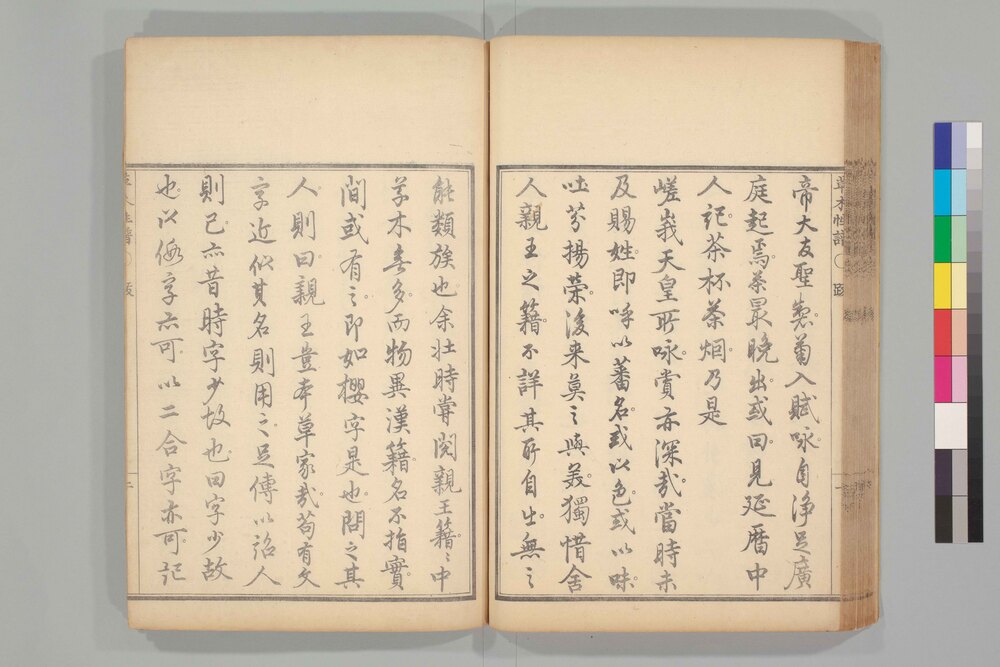 帝大友聖製菊入賦咏自浄足廣
庭起焉茶最晩出或曰見延暦中
人記茶杯茶烟乃是
嵯峩天皇所咏賞亦深哉當時未
及賜姓即呼以蕃名或以色或以味
吐芬揚榮後来莫之與美獨惜舍
人親王之籍不詳其所自出無之
能類族也余壮時甞閲親王籍〻中
草木甚多而物異漢籍名不指實
間或有之即如櫻字是也問之其
人則曰親王豈本草家哉苟有文
字近似其名則用之足傳以詔人
則已亦昔時字少故也曰字少故
也以假字亦可以二合字亦可記